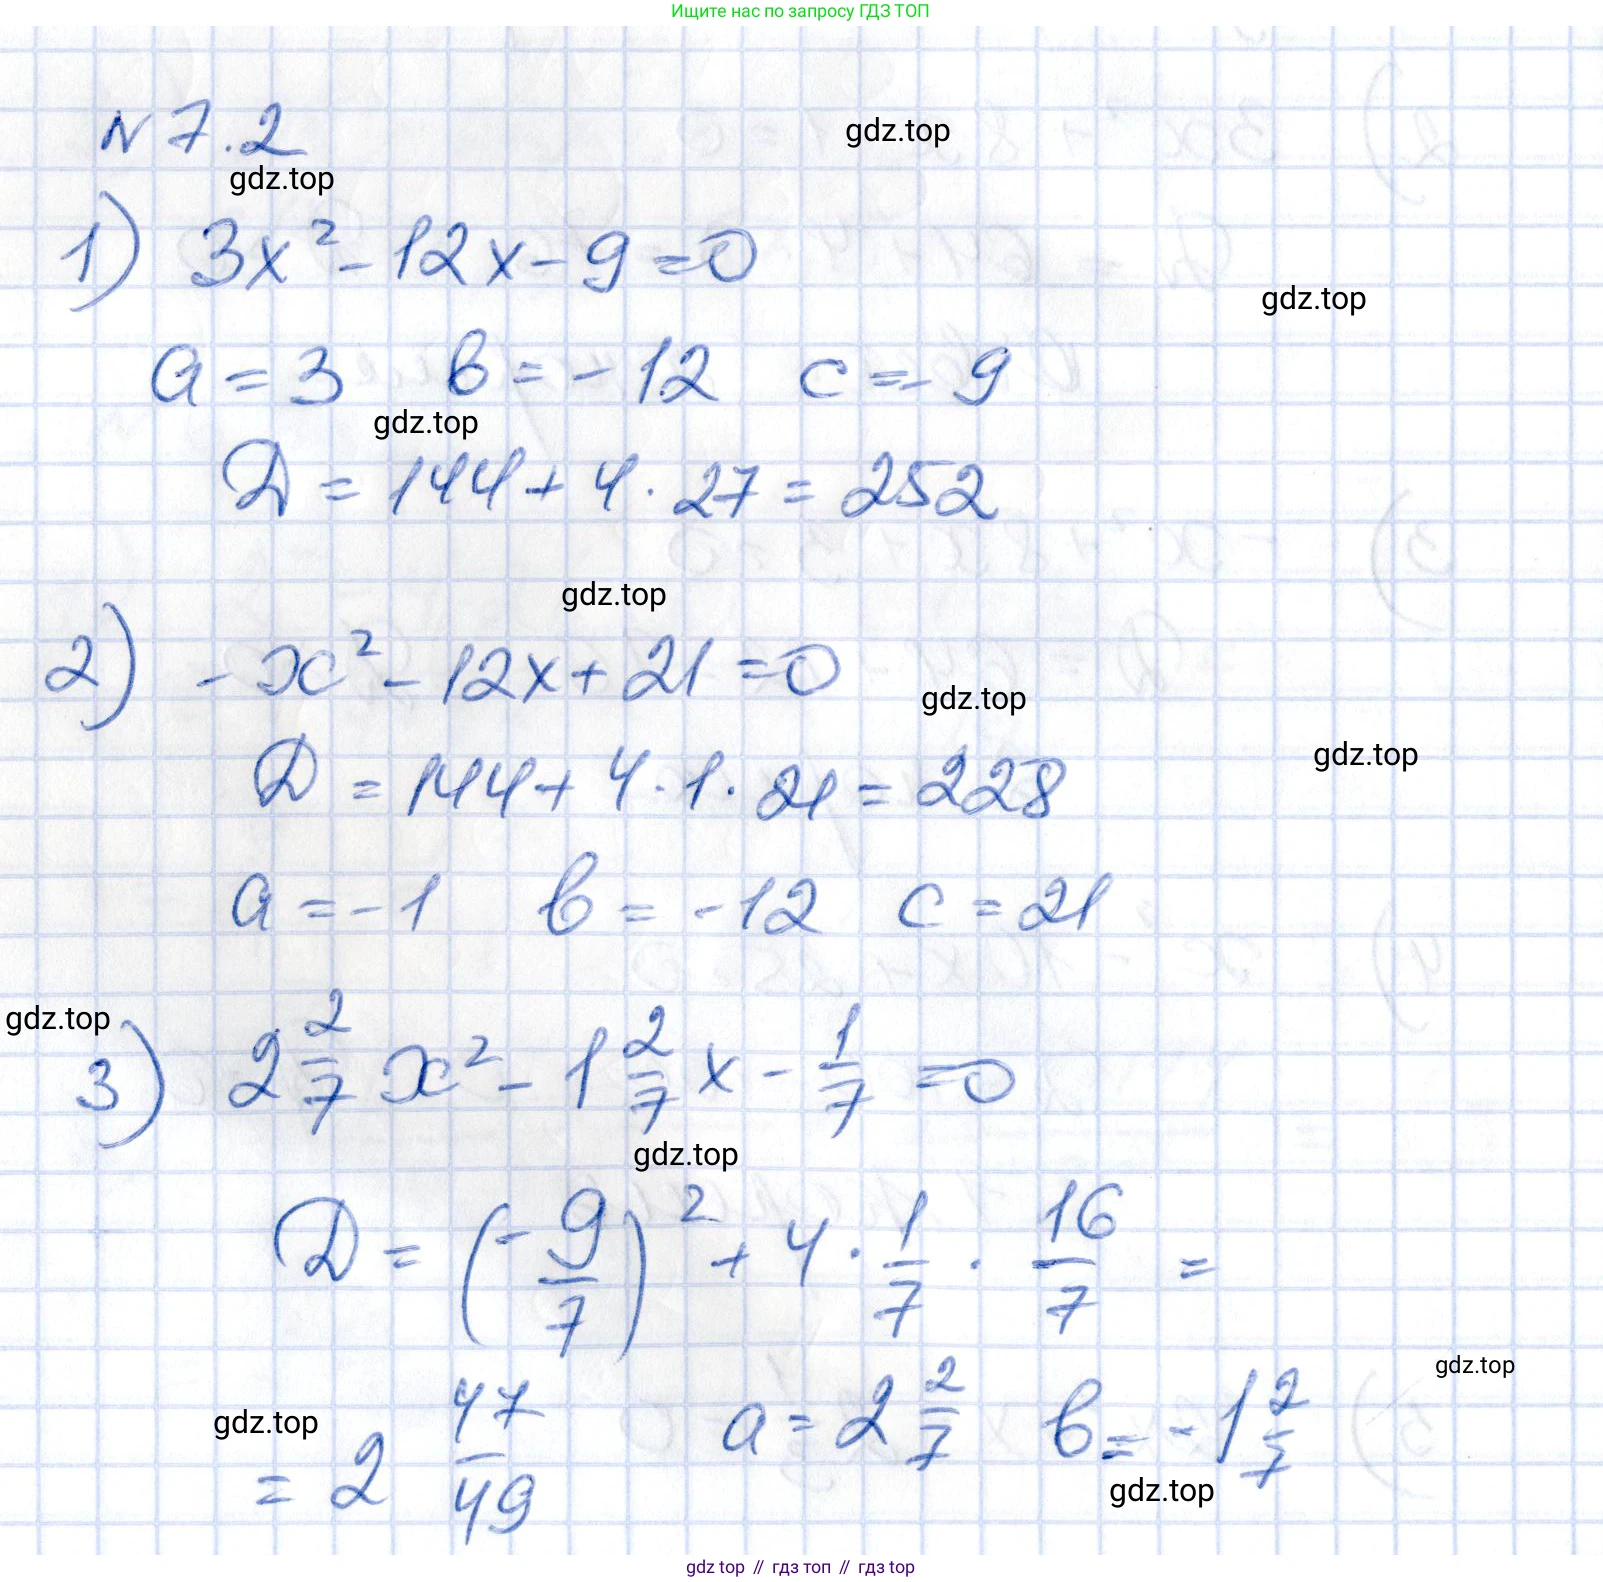 Ищите нас по запросу ГДЗ ТОП
N 7.2
gdz.top
gdz.top
1) 3x² - 12x - 9 = 0
gdz.top
a = 3 в = - 12 c = - 9
gdz.top
D = 144 + 4 · 27 = 252
gdz.top
2) - x² - 12x + 21 = 0
gdz.top
gdz.top
D = 144 + 4 · 1 · 21 = 228
a = - 1 в = - 12 c = 21
gdz.top
3) 2 2/7 x² - 1 2/7 x - 1/7 = 0
gdz.top
D = (- 9/7)² + 4 · 1/7 · 16/7 =
gdz.top
gdz.top
= 2 47/49 a = 2 2/7 в = - 1 2/7
gdz.top
gdz top // гдз топ // гдз top